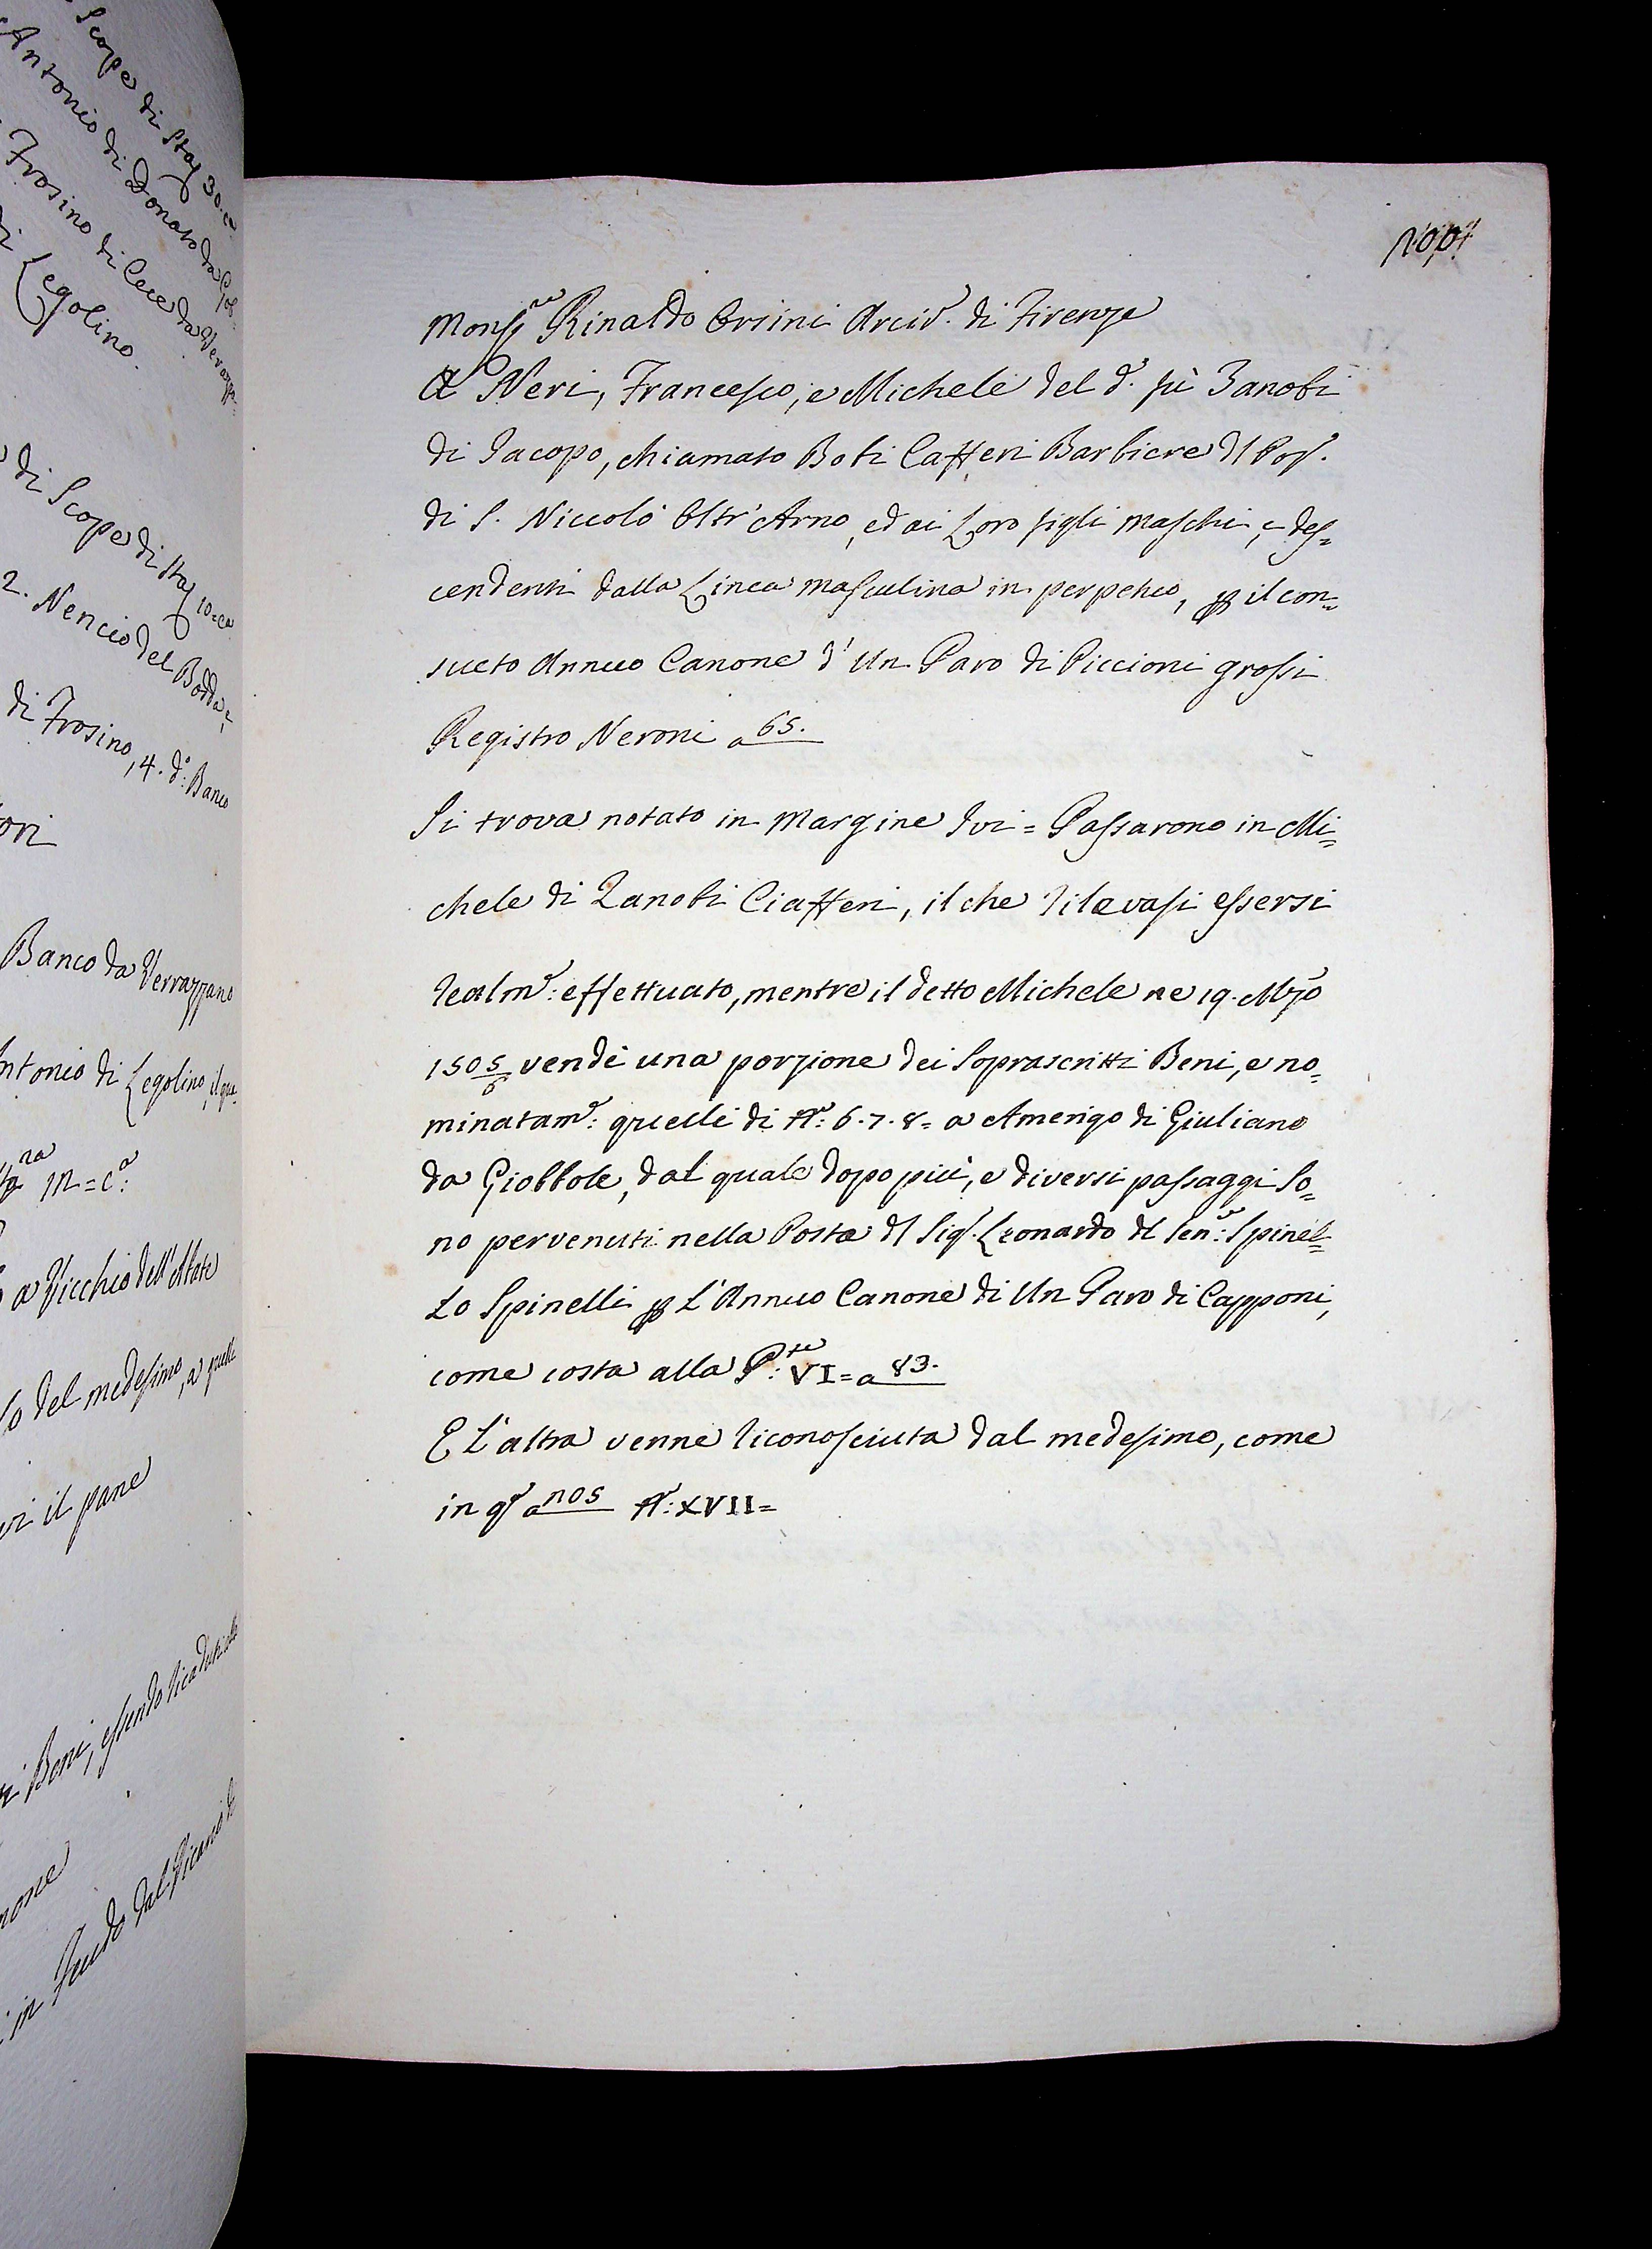 Scope di Staj 30. c.ª
Antonio di Donato da
Frosino di Cece da Verazza=
di Legolino.
di Scope di Staj 10=ca
2. Nencio del Bodda,
di Frosino, 4. d.º Banco
ori
Banco da Verrazzano
Antonio di Legolino, il qua=
m=c.ª
a Vicchio dell'Abate
lo del medesimo, a quelle
il pane
Beni, essendo
none
in feudo dal
Monsig.re Rinaldo Orsini Arciv.o di Firenze
A Neri, Francesco, e Michele del d.o fù Zanobi
di Jacopo, chiamato Boti Cafferi Barbiere dl Pop.
di S. Niccolò Oltr'Arno, ed ai Loro figli maschi, e des=
cendenti dalla Linea masculina in perpetuo, p il con=
sueto Annuo Canone d'Un Paro di Piccioni grossi
Registro Neroni a 65.
Si trova notato in Margine Ivi = Passarono in Mi=
chele di Zanobi Ciafferi, il che rilevasi essersi
realm.e: effettuato, mentre il detto Michele ne 19. Mzo
1505/6 vendè una porzione dei Soprascritti Beni, e no=
minatam.e: quelli di N.º: 6. 7. 8= a Amerigo di Giuliano
da Giobbole, dal quale dopo più, e diversi passaggi So=
no pervenuti nella Posta dl Sig.r Leonardo dl Sen.re: Spinel=
lo Spinelli p L'Annuo Canone di Un Paro di Capponi,
come costa alla P.te: VI= a 83.
E L'altra venne riconosciuta dal medesimo, come
in q.o a 1105 N.º: XVII=